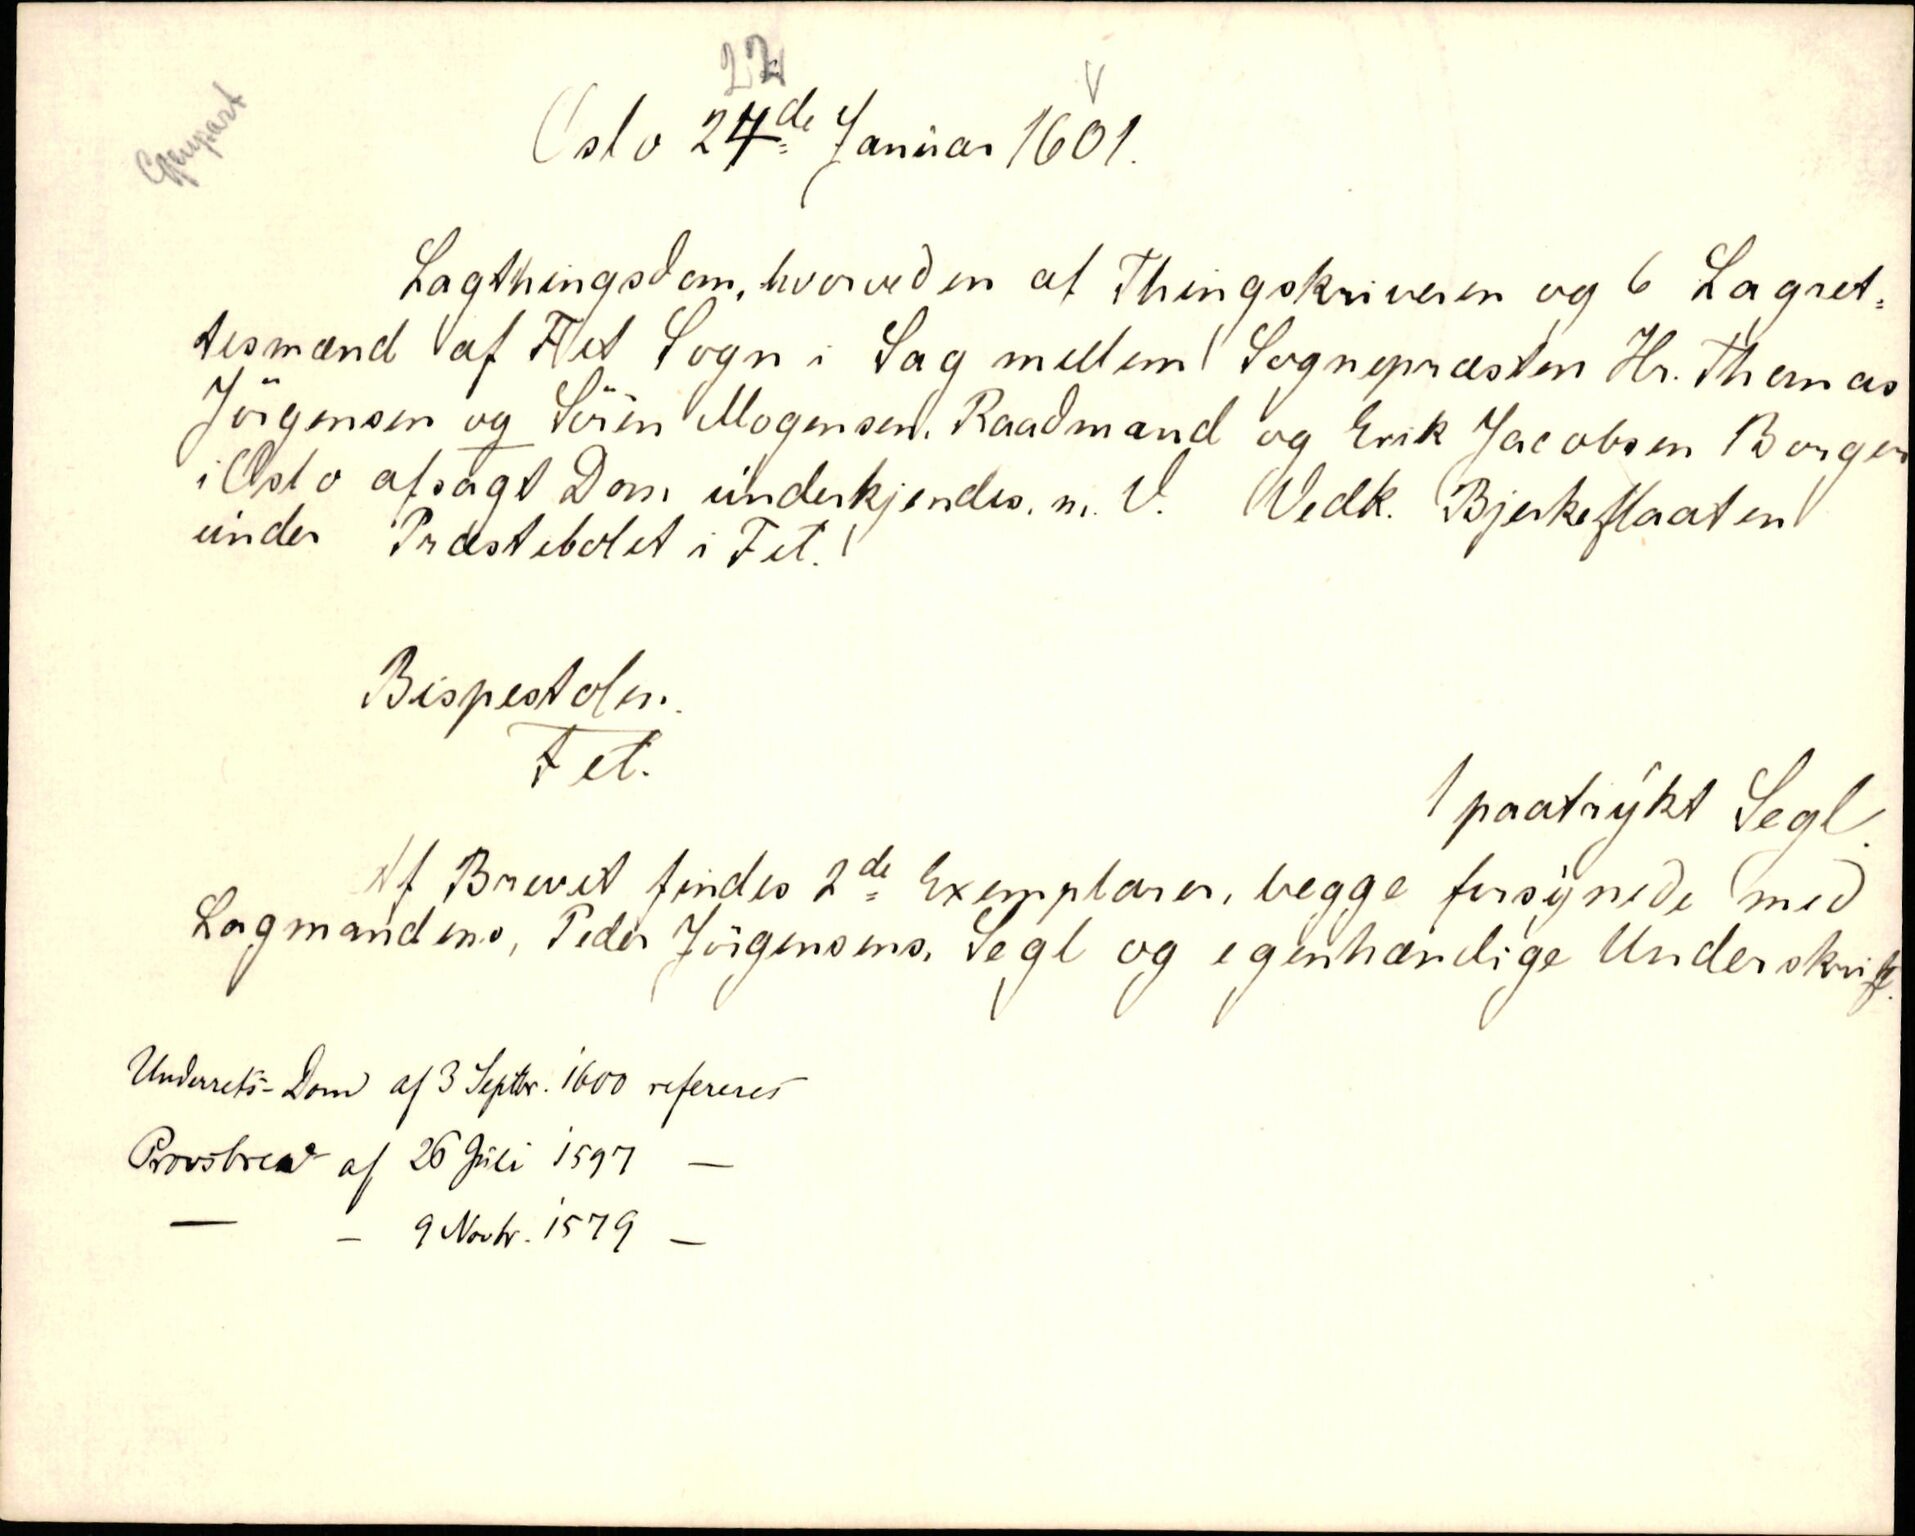 Gjenpart
22
V
Oslo 24de Januar 1601.
Lagthingsdom, hvorved en af Thingskriveren og 6 Lagret-
tesmænd af Fet Sogn i Sag mellem Sognepræsten Hr. Thomas
Jörgensen og Sören Mogensen, Raadmand og Erik Jacobsen Borger
i Oslo afsagt Dom underkjendes. m. V. Vedk. Bjerkeflaaten
under Præstebolet i Fet.
Bispestolen.
Fet.
1 paatrykt Segl.
Af Brevet findes 2de Exemplarer, begge forsynede med
Lagmandens, Peder Jörgensens, Segl og egenhændige Underskrift.
Underrets-Dom af 3 Septbr. 1600 refereres
Provsbrev af 26 Juli 1597 —
— – 9 Novbr. 1579 –